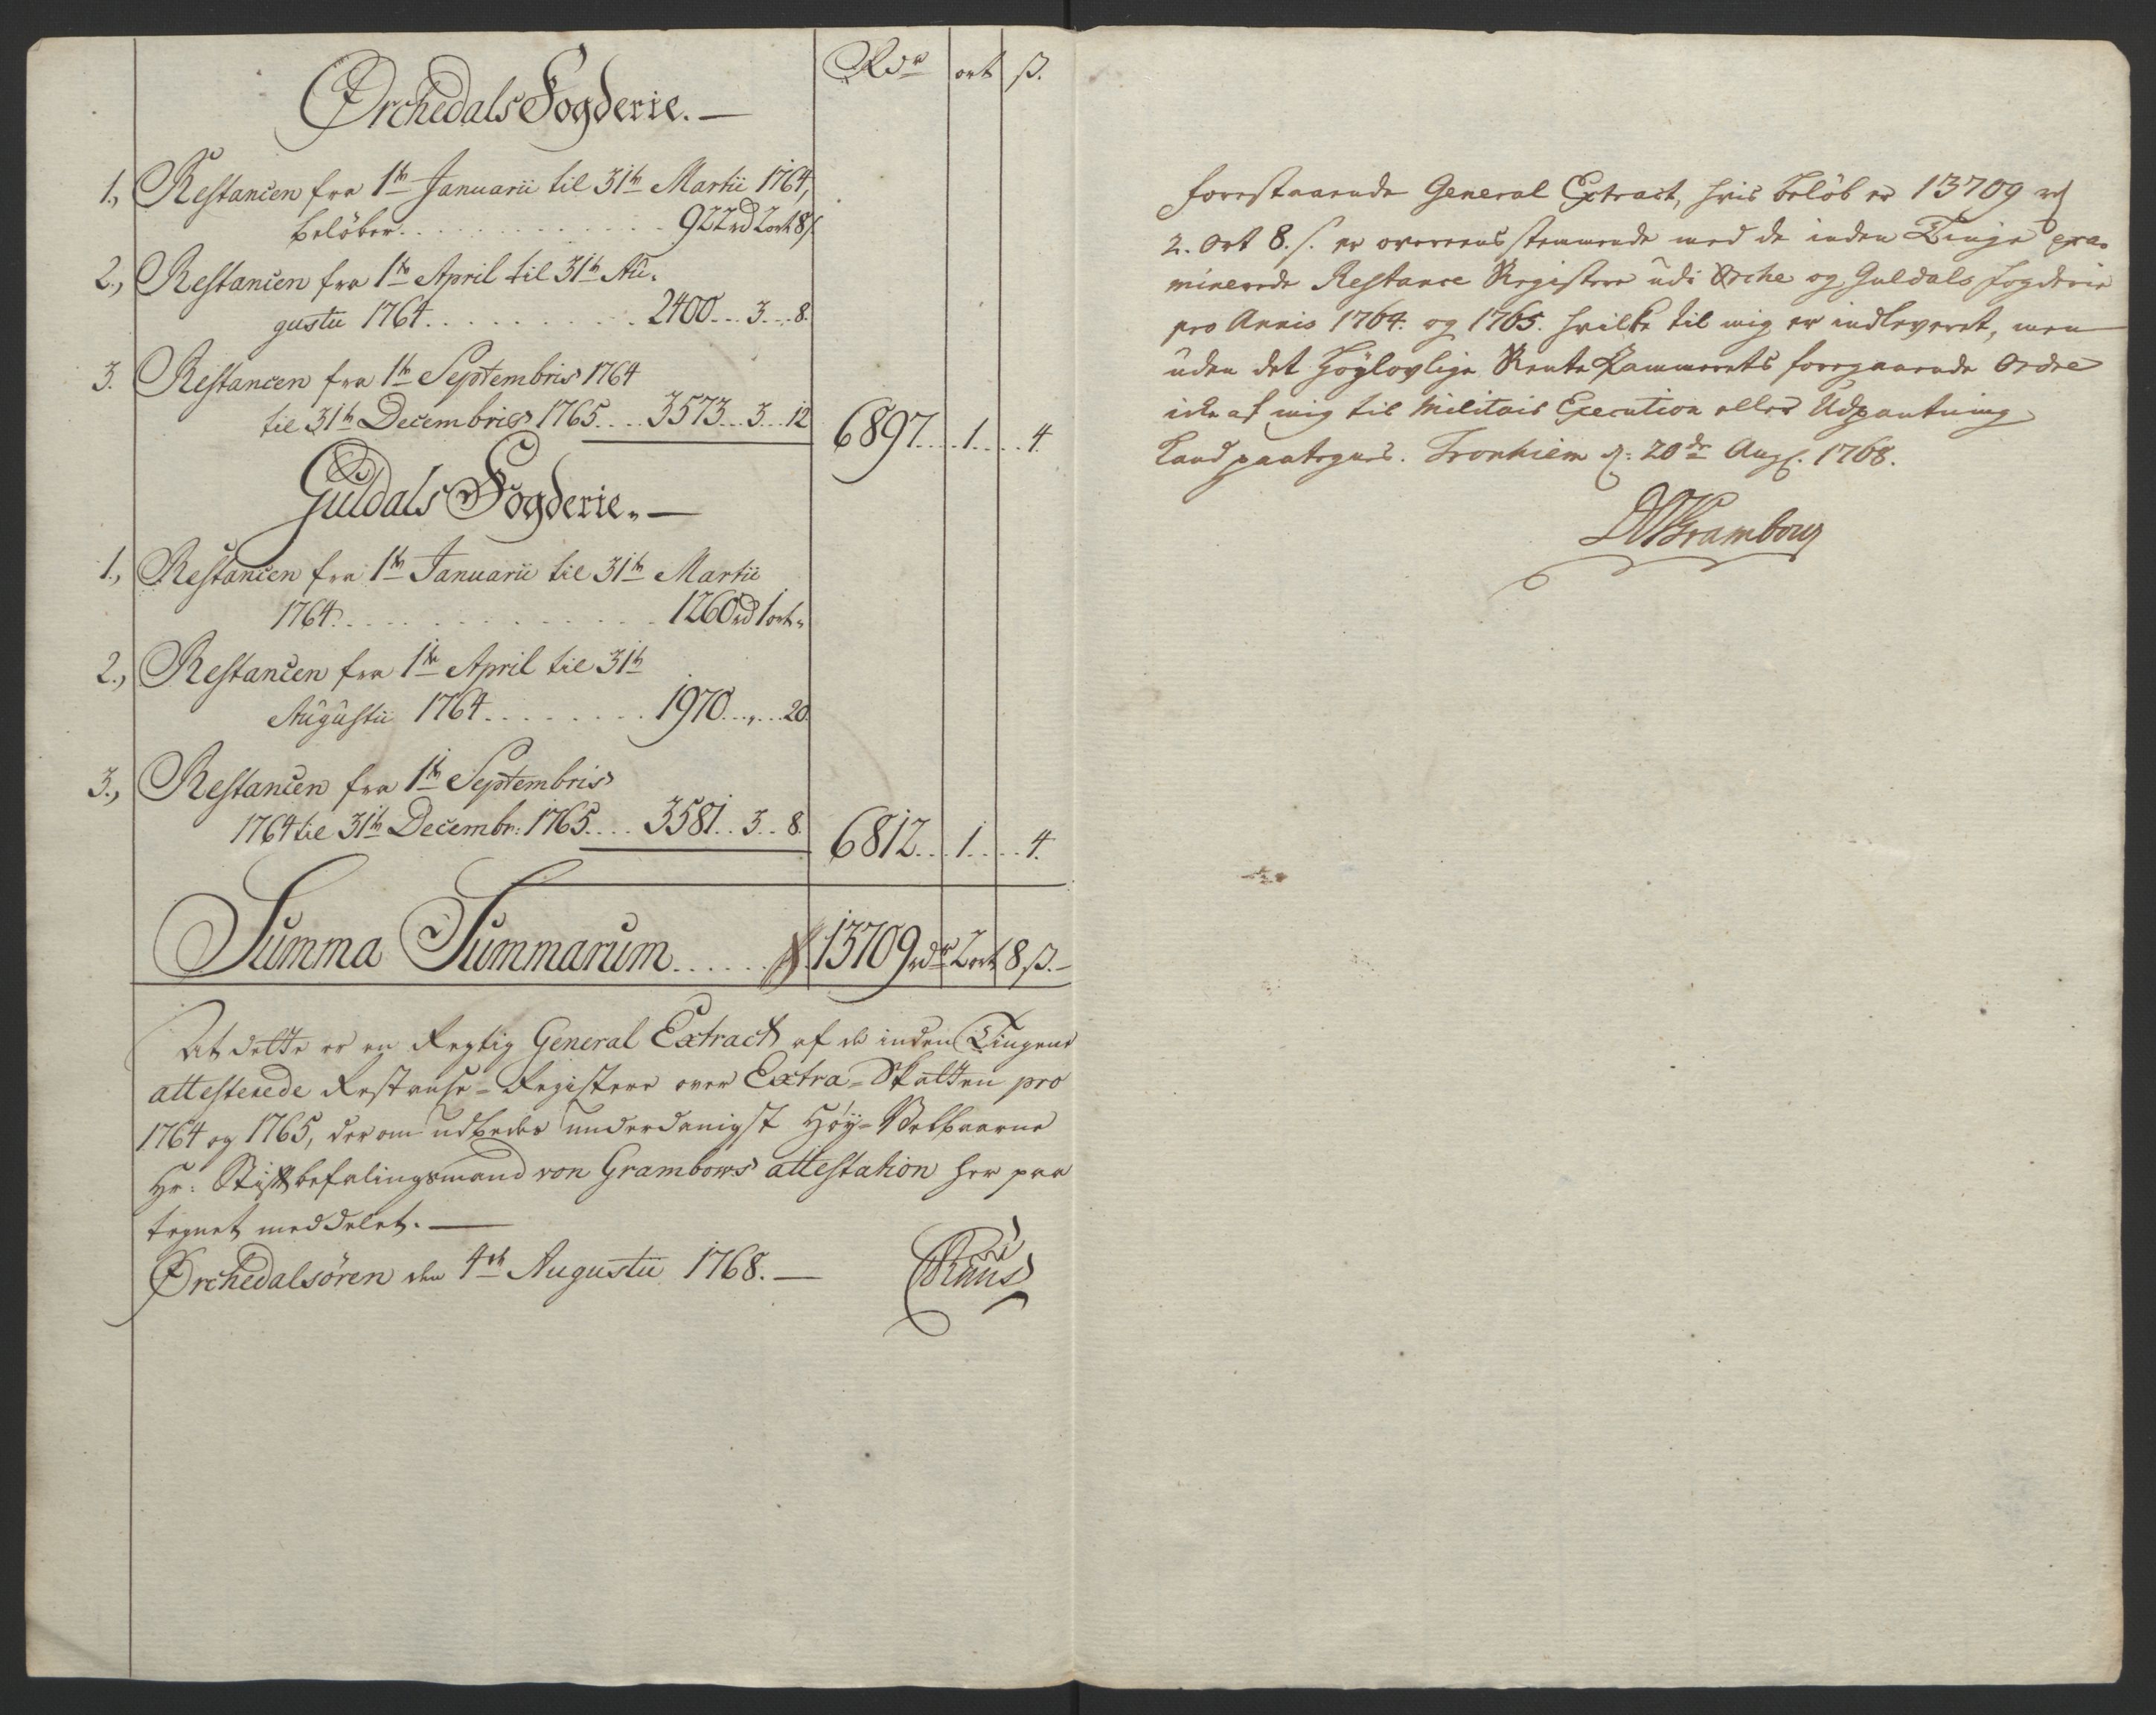 Rdr ort ß.
Ørchedals Fogderie. —
1., Restancen fra 1te Januarii til 31te Martii 1764,
beløber . . . . . . . . . . . . 922 rd 2 ort 8 s
2., Restancen fra 1te April til 31te Au-
gustii 1764 . . . . . . . . . . 2400 . . 3 . . 8.
3. Restancen fra 1te Septembris 1764
til 31te Decembris 1765 . . . . 3573 . . 3 . . 12 6897 . . . 1 . . . 4.
Guldals Fogderie. —
1., Restancen fra 1te Januarii til 31te Martii
1764 . . . . . . . . . . . . . . 1260 rd 1 ort „
2., Restancen fra 1te April til 31te
Augustii 1764 . . . . . . . . 1970 . . „ . . 20.
3., Restancen fra 1te Septembris
1764 til 31te Decembr: 1765 . . . . 3581 . . 3 . . 8. 6812 . . . 1 . . . 4.
Summa Summarum . . . . . . 13709 rdr 2 ort 8 ß. —
At dette er en Regtig General Extract af de inden Tingene
attesterede Restanse-Registere over Extra-Skatten pro
1764 og 1765, derom udbedes underdanigst Høy-Velbaarne
Hr: Stiftbefalingsmand von Grambows attestation her paa
tegnet meddelet. —
Ørchedalsøren den 4de Augustii 1768. —
forestaaende General Extract, hvis beløb er 13709 rd
2. Ort 8. s. er overeensstemmende med de inden Tinge exa-
minerede Restance Registere udi Orche og Guldals fogderie
pro Annis 1764. og 1765. hvilke til mig er indleveret, men
uden det Høylovlige Rente Kammerets foregaaende Ordre
icke af mig til Militair Execution eller Udpantning
kand paategnes. Tronhiem d: 20de Aug. 1768.
Grambow